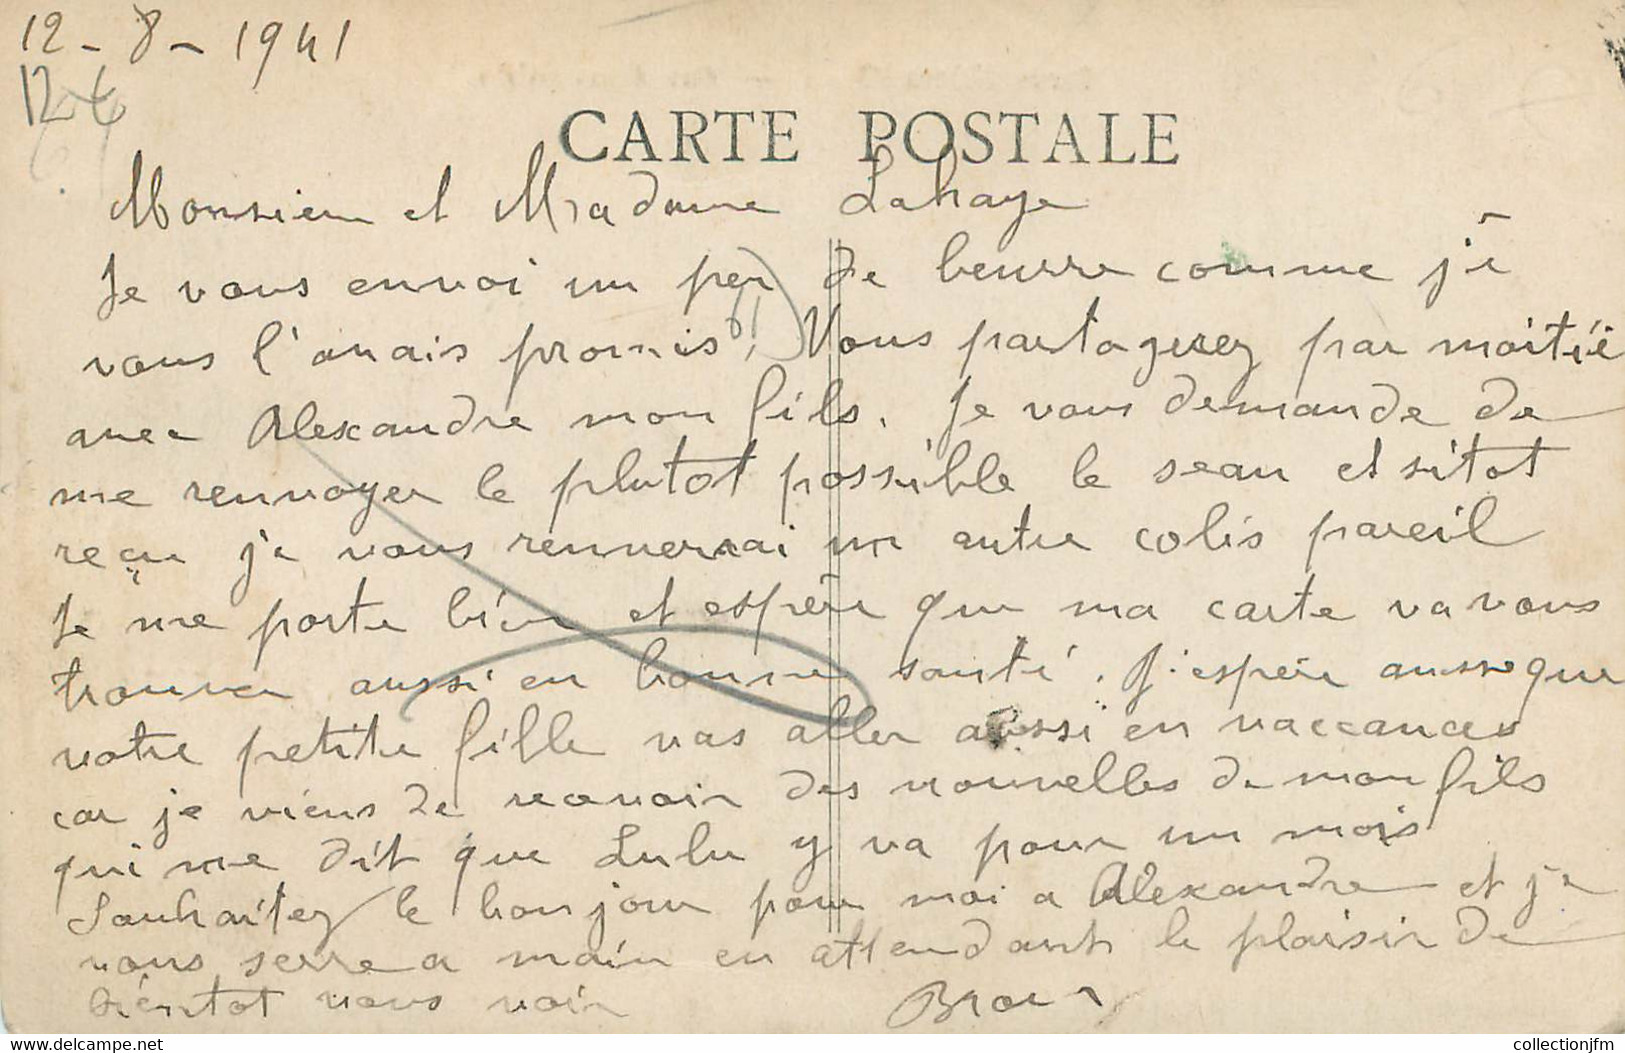 12-8-1941
CARTE POSTALE
Monsieur et Madame Lahaye
Je vous envoi un peu de beurre comme je
vous l'avais promis, Vous partagerez par moitié
avec Alexandre mon fils. Je vous demande de
me renvoyer le plutot possible le seau et sitot
reçu je vous renverrai un autre colis pareil
Je me porte bien et espère que ma carte va vous
trouver aussi en bonne santé. J'espère aussi que
votre petite fille vas aller aussi en vaccances
car je viens de recevoir des nouvelles de mon fils
qui me dit que Lulu y va pour un mois
Souhaitez le bonjour pour moi a Alexandre et je
vous serre a main en attendant le plaisir de
bientot vous voir
collectionjfm